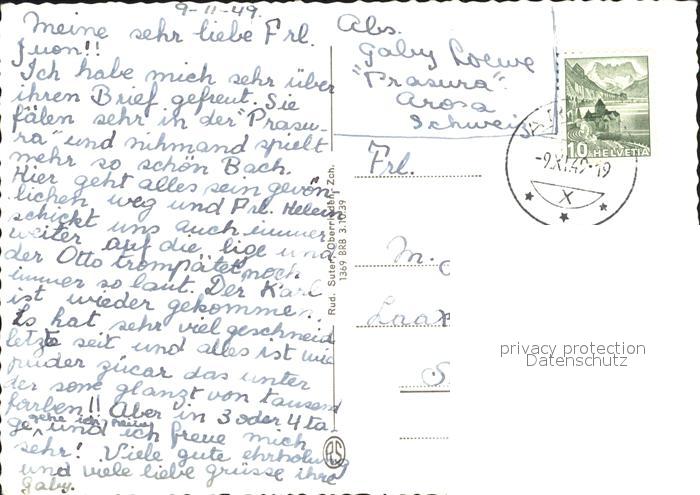 9-11-49.
Meine sehr liebe Frl.
Juon!!
Ich habe mich sehr über
ihren Brief gefreut. Sie
fälen sehr in der "Prasu-
ra" und nihmand spielt
mehr so schön Bach.
Hier geht alles sein gewön-
lichen weg und Frl. Helein
schickt uns auch immer
weiter auf die lige und
der Otto trompätet noch
immer so laut. Der Karl
ist wieder gekommen.
Es hat sehr viel geschneid
letzte seit und alles ist wie
puder zúcar das unter
der sone glanzt von tausend
farben!! Aber in 3 oder 4 ta-
ge gehe ich heim und ich freue mich
sehr! Viele gute ehrholung
und viele liebe grüsse ihre
Gaby.
Rud. Suter, Oberrieden-Zch.
1369 BRB 3.10.39
RS
Abs.
Gaby Loewe
"Prasura"
Arosa
Schweiz
10 HELVETIA
-9.XI.49-19
X
Frl.
M.
Laax
S
privacy protection
Datenschutz